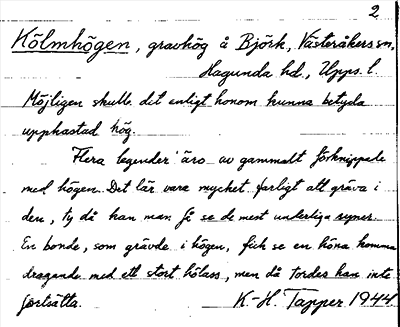 2
Kölmhögen, gravhög å Björk, Västeråkers sn,
Hagunda hd., Upps. l.
Möjligen skulle det enligt honom kunna betyda
uppkastad hög.
Flera legender äro av gammalt förknippade
med högen. Det lär vara mycket farligt att gräva i
den, ty då kan man få se de mest underliga syner.
En bonde, som grävde i högen, fick se en höna komma
dragande med ett stort hölass, men då tordes han inte
fortsätta. K-H. Tapper 1944